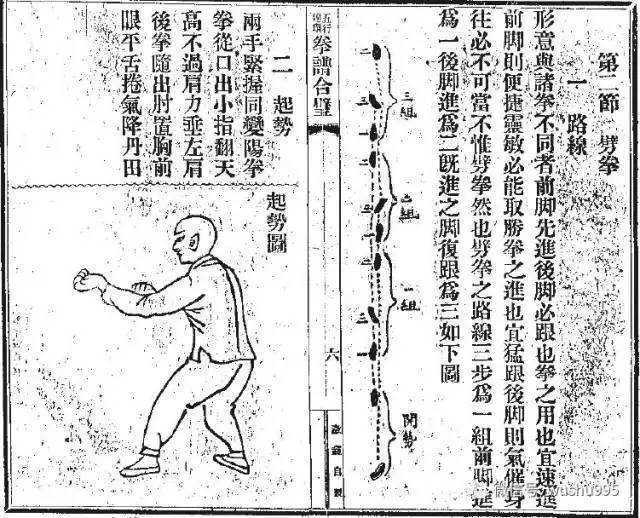 第二節 劈拳
一 路線
形意與諸拳不同者前脚先進後脚必跟也拳之用也宜速進
前脚則便捷靈敏必能取勝拳之進也宜猛跟後脚則氣催身
往必不可當不惟劈拳然也劈拳之路線三步爲一組前脚進
爲一後脚進爲二既進之脚復跟爲三如下圖
三組
二組
一組
開勢
五行連環 拳譜合璧
六
自製
二 起勢
兩手緊握同變陽拳
拳從口出小指翻天
高不過肩力垂左肩
後拳隨出肘置胸前
眼平舌捲氣降丹田
起勢圖
wushu995